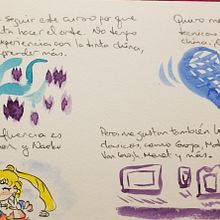 seguir este curso por que
hacer el arte. No tengo
experiencia con la tinta china,
prender más.
Quiero
técnicas
china,
fluencia es
y Naoko
Pero me gustan también
clásicos, como Goya,
Van Gogh, Monet y más.